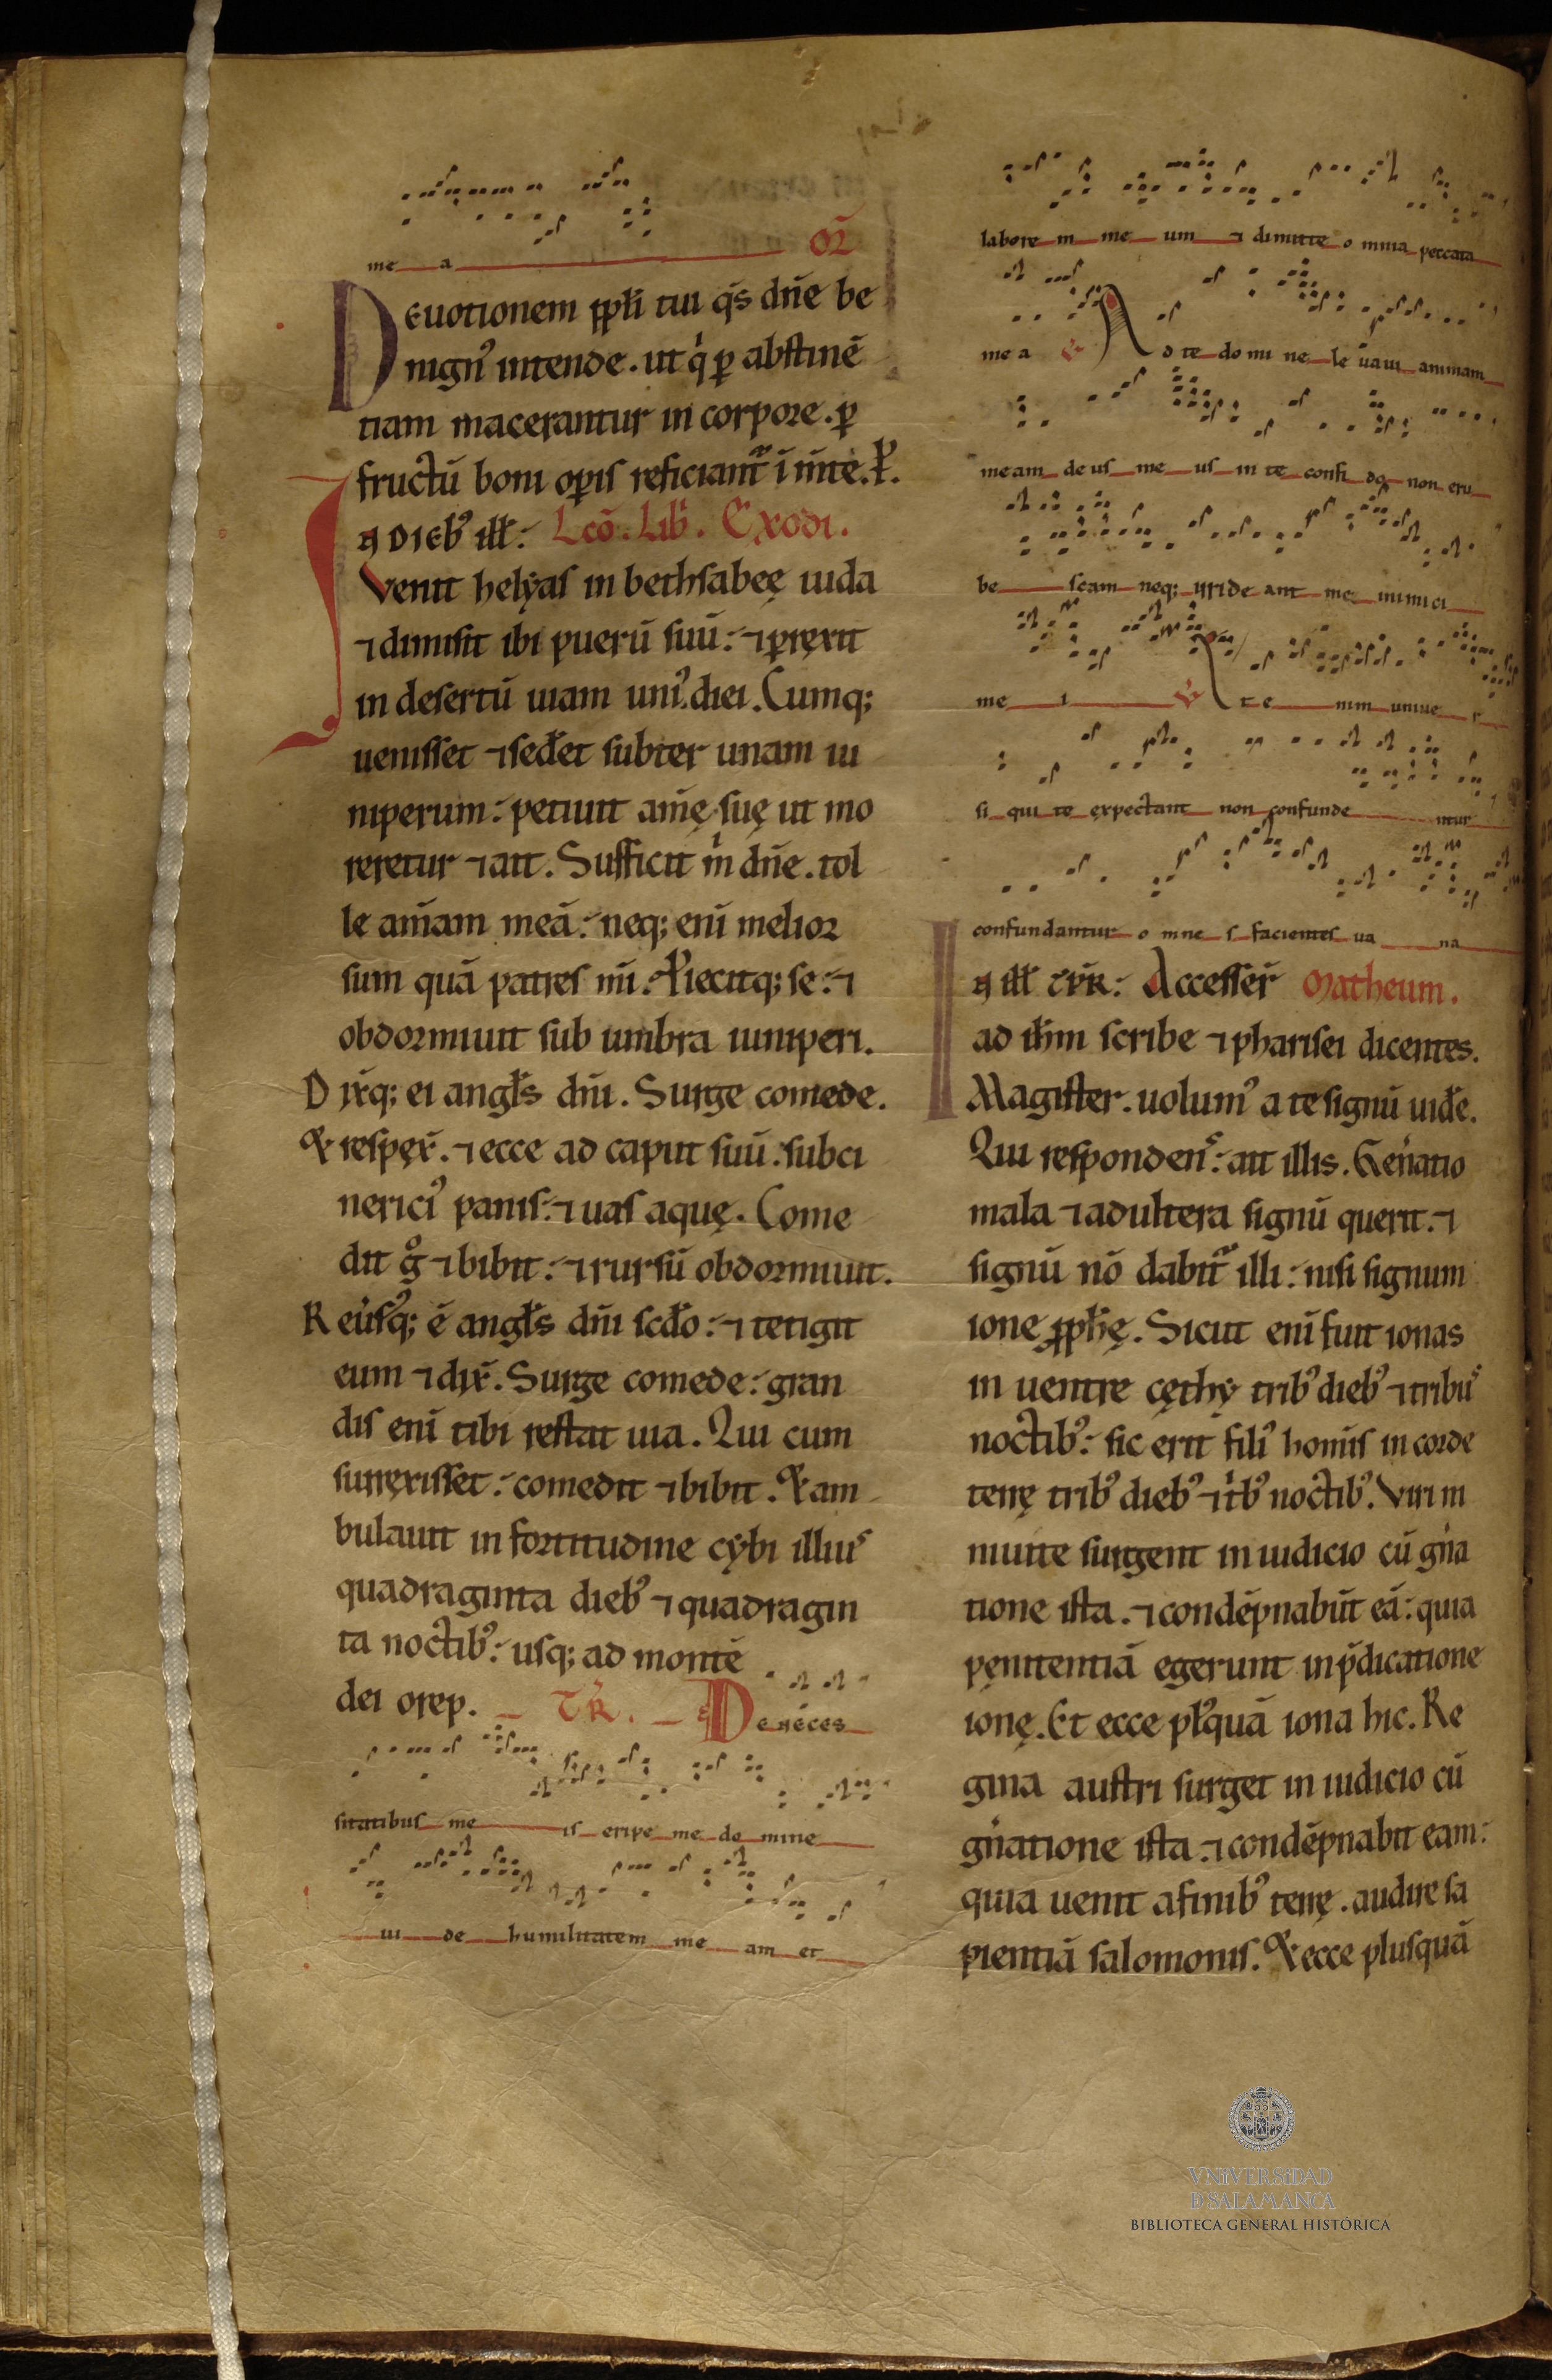 me a OR̄
Deuotionem pp̄li tui qs̄ dn̄e be
nignꝰ intende. ut qͥ ꝑ abstinē
tiam macerantur in corpore. ꝑ
fructū boni opis reficiant᷑ ī m̄te. P̄.
IN DIEbꝰ ill̄: Lcō. Lib̄. Exodi.
Venit helẏas in bethsabeę iuda
⁊ dimisit ibi puerū suū: ⁊ ꝑrexit
in desertū uiam uniꝰ diei. Cumq;
uenisset ⁊ sed̄et subter unam iu
niperum: petiuit aīmę suę ut mo
reretur ⁊ ait. Sufficit mͥ dn̄e. tol
le am̄am meā: neq; enī melior
sum quā patres mī. Piecitq; se: ⁊
obdormiuit sub umbra iuniperi.
Dixq; ei angl̄s dn̄i. Surge comede.
Et respex̄. ⁊ ecce ad caput suū. subci
nericiꝰ panis: ⁊ uas aquę. Come
dit gͦ ⁊ bibit: ⁊ rursū obdormiuit.
Reuͥsꝰq; ē angl̄s dn̄i scd̄o: ⁊ tetigit
eum ⁊ dix̄. Surge comede: gran
dis enī tibi restat uia. Qui cum
surrexisset: comedit ⁊ bibit. Et am
bulauit in fortitudine cẏbi illius
quadraginta diebꝰ ⁊ quadragin
ta noctibꝰ: usq; ad montē
dei orep. TR̄. De neces
sitatibus me is eripe me do mine
ui de humilitatem me am et
labore m me um ⁊ dimitte o mnia peccata
mea V̄ Ad te do mi ne le uaui animam
meam deus me us in te confi do non eru
be scam neq; irride ant me inimici
me i V̄ Ete nim uniue r
si qui te expectant non confunde ntur
confundantur o mne s facientes ua na
IN ill̄ TP̄R: Accesser̄ Matheum.
ad ih̄m scribe ⁊ pharisei dicentes.
Magister. uolumꝰ a te signū uid̄e.
Qui respondens: ait illis. Gen̄atio
mala ⁊ adultera signū querit. ⁊
signū nō dabit᷑ illi: nisi signum
ione ꝓph̄ę. Sicut enī fuit ionas
in uentre cęthẏ tribꝰ diebꝰ ⁊ tribus
noctibꝰ: sic erit filiꝰ hom̄is in corde
terrę tribꝰ diebꝰ ⁊ tͥbꝰ noctibꝰ. Viri ni
niuite surgent in iudicio cū gn̄a
tione ista. ⁊ condēpnabūt eā: quia
pęnitentiā egerunt in p̄dicatione
ionę. Et ecce pl̄ꝰquā iona hic. Re
gina austri surget in iudicio cū
gn̄atione ista. ⁊ condēpnabit eam:
quia uenit a finibꝰ terrę. audire sa
pientiā salomonis. Et ecce plusquā
VNIVERSIDAD
D SALAMANCA
BIBLIOTECA GENERAL HISTÓRICA